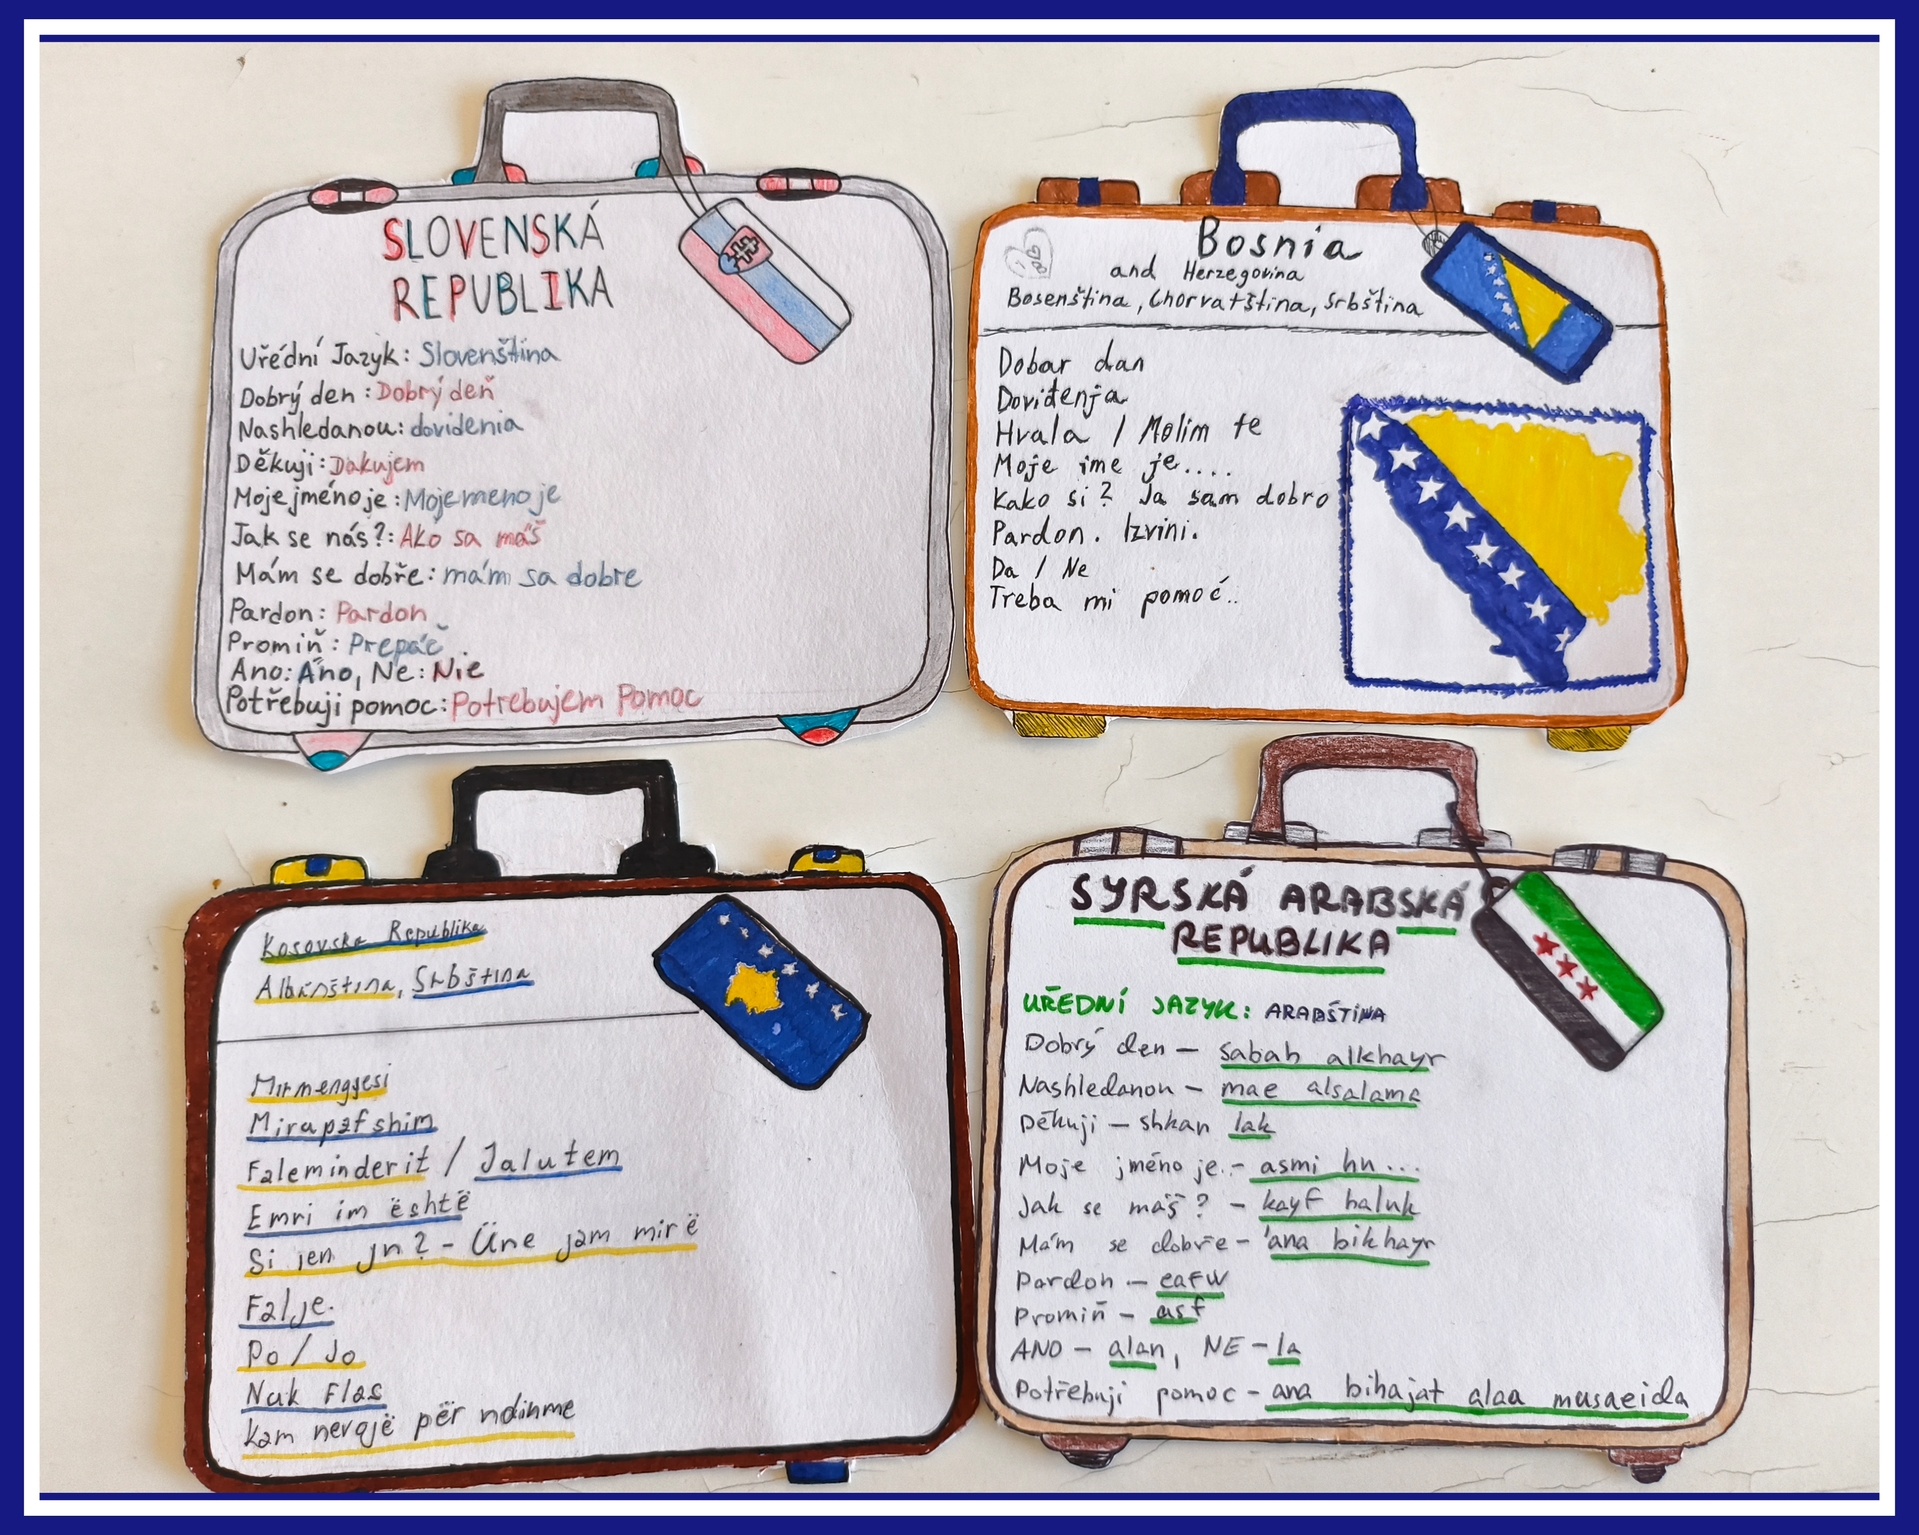 SLOVENSKÁ
REPUBLIKA
Uřédní Jazyk: Slovenština
Dobrý den: Dobrý deň
Nashledanou: dovidenia
Děkuji: Dakujem
Moje jméno je: Moje meno je
Jak se nás?: Ako sa máš
Mám se dobře: mám sa dobre
Pardon: Pardon
Promiň: Prepáč
Ano: Áno, Ne: Nie
Potřebuji pomoc: Potrebujem Pomoc
Bosnia
and Herzegovina
Bosenština, Chorvatština, Srbština
Dobar dan
Doviđenja
Hvala / Molim te
Moje ime je....
Kako si? Ja sam dobro
Pardon. Izvini.
Da / Ne
Treba mi pomoć..
Kosovska Republika
Albánština, Srbština
Mirmengjesi
Mirupafshim
Faleminderit / Jalutem
Emri im është
Si jen jn? - Üne jam mirë
Falje.
Po / Jo
Nuk Flas
kam nevojë për ndihme
SYRSKÁ ARABSKÁ
REPUBLIKA
UŘEDNÍ JAZYK: ARABŠTINA
Dobrý den - sabah alkhayr
Nashledanou - mae alsalama
Děkuji - shkan lak
Moje jméno je.- asmi hu...
Jak se máš? - kayf haluk
Mám se dobře - 'ana bikhayr
Pardon - eafw
Promiň - asf
ANO - alan, NE - la
Potřebuji pomoc - ana bihajat alaa musaeida